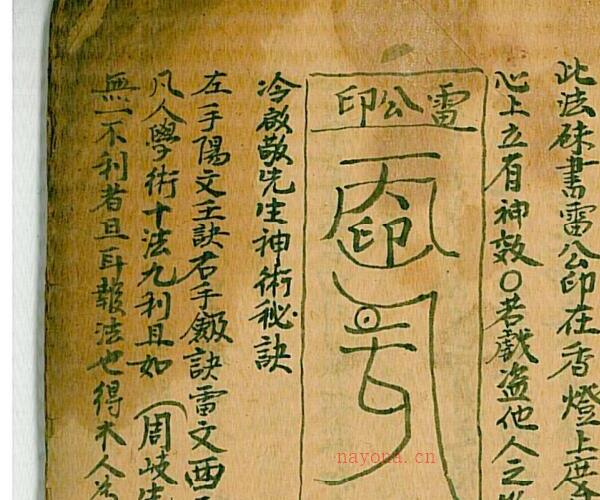 此法硃書雷公印在香燈上度
心上立有神效〇若戲盗他人之
雷公印
冷啟敬先生神術秘訣
左手陽文王訣右手劔訣雷文西
凡人學術十法九利且如周岐
無一不利者且耳報法也得木人
nayona.cn